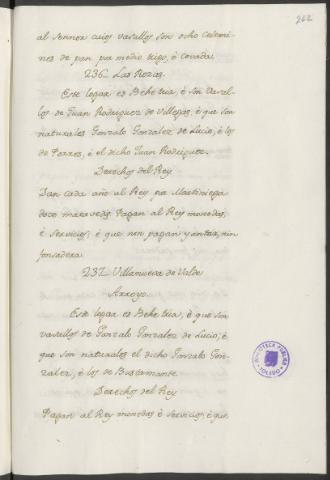 262
al sennor cuios vasallos son ocho celemi-
nes de pan por medio trigo, è cevada.
236. Las Rozas.
Este logar es Behetria, è son Vasal-
los de Juan Rodriguez de Villegas, è que son
naturales Gonzalo Gonzalez de Lucio, è los
de Porres, è el dicho Juan Rodriguez.
Derechos del Rey
Dan cada año al Rey por Martiniega
doce maravedis. Pagan al Rey monedas,
è servicios, è que non pagan yantar, nin
fonsadera.
237. Villanueva de Valde
Arroyo.
Este logar es Behetria, è que son
vasallos de Gonzalo Gonzalez de Lucio, è
que son naturales el dicho Gonzalo Gon-
zalez, è los de Bustamante.
Derechos del Rey
Pagan al Rey monedas è servicios, è que
BIBLIOTECA PUBLICA
TOLEDO